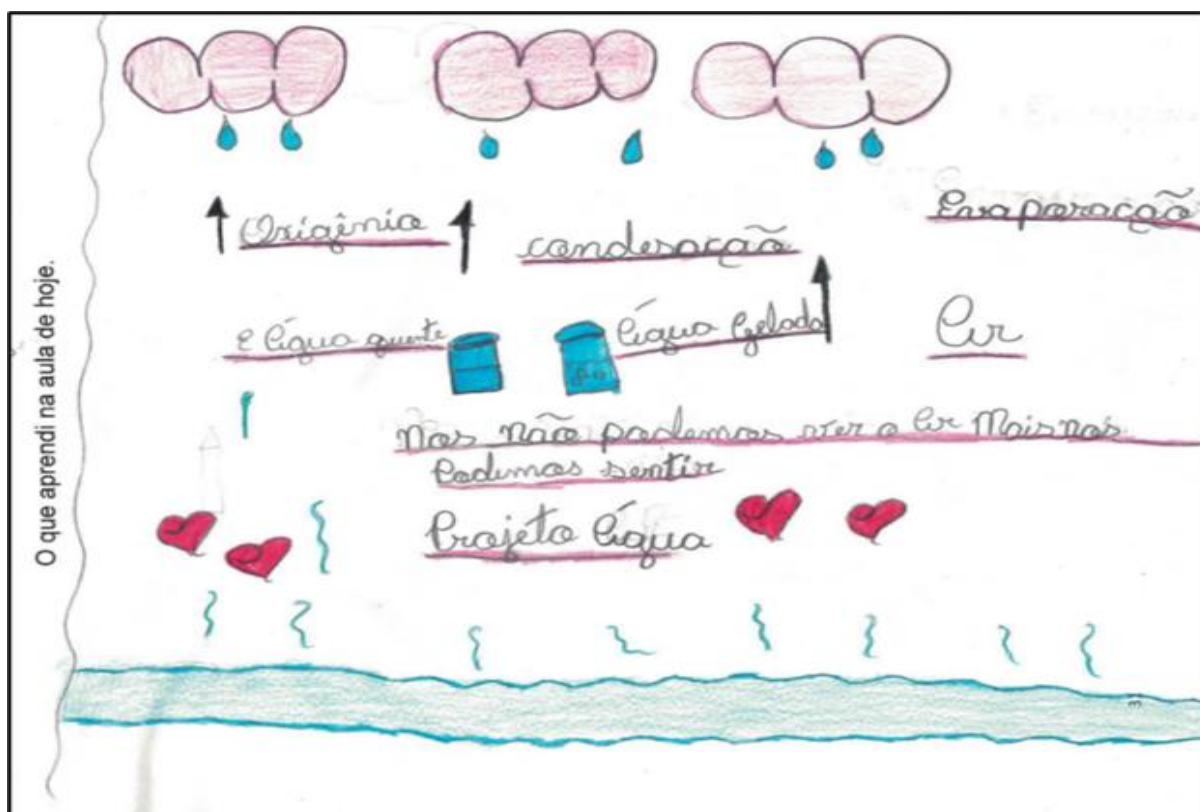 O que aprendi na aula de hoje.
Oxigênio
Evaporação
condesação
E Água quente
Água Gelada
Ar
Nos não podemos ver o Ar Mais nós
Podemos sentir
Projeto Água
31